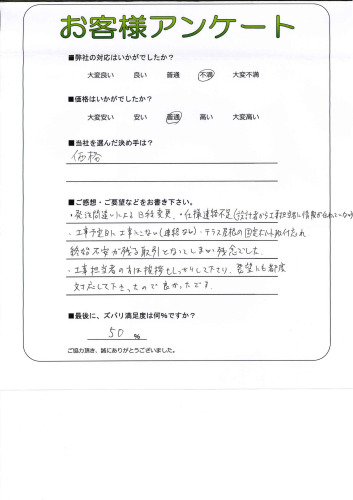 お客様アンケート
■弊社の対応はいかがでしたか?
大変良い 良い 普通 不満 大変不満
■価格はいかがでしたか?
大変安い 安い 普通 高い 大変高い
■当社を選んだ決め手は?
価格
■ご感想・ご要望などをお書き下さい。
・発注間違いによる日程変更 ・仕様連絡不足(設計者から工事担当者に情報が伝わっていなかった
・工事予定日に工事に来ない(連絡なし)・テラス屋根の固定ボルト取付忘れ
終始不安が残る取引となってしまい残念でした。
・工事担当者の方は挨拶もしっかりして下さり、要望にも都度
対応して下さったので良かったです。
■最後に、ズバリ満足度は何%ですか?
50 %
ご協力頂き、誠にありがとうございました。